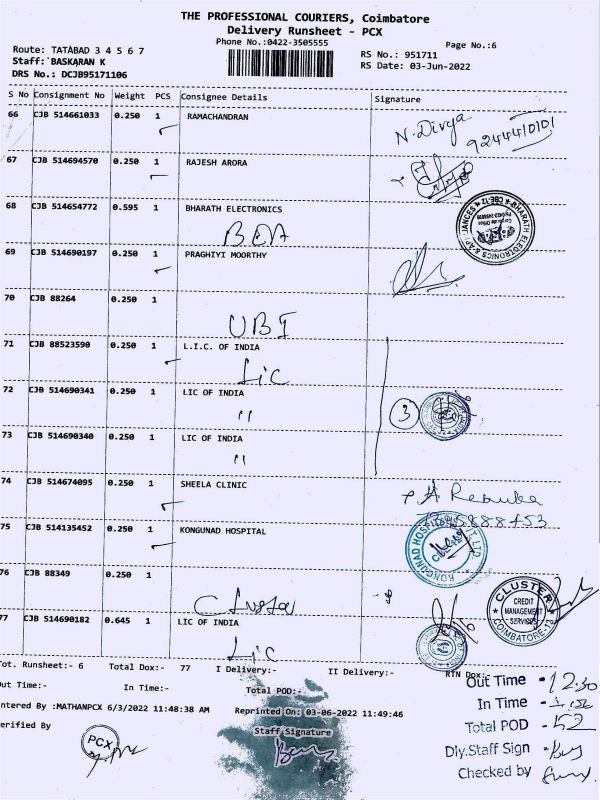 THE PROFESSIONAL COURIERS, Coimbatore
Delivery Runsheet - PCX
Phone No.:0422-3505555
Page No.:6
Route: TATABAD 3 4 5 6 7
Staff: BASKARAN K
DRS No.: DCJB95171106
RS No.: 951711
RS Date: 03-Jun-2022
S No Consignment No Weight PCS Consignee Details Signature
66 CJB 514661033 0.250 1 RAMACHANDRAN
N. Divya
9244410101
67 CJB 514694570 0.250 1 RAJESH ARORA
68 CJB 514654772 0.595 1 BHARATH ELECTRONICS
BEA
69 CJB 514690197 0.250 1 PRAGHIYI MOORTHY
70 CJB 88264 0.250 1
UBI
71 CJB 88523590 0.250 1 L.I.C. OF INDIA
Lic
72 CJB 514690341 0.250 1 LIC OF INDIA
"
3
73 CJB 514690340 0.250 1 LIC OF INDIA
"
74 CJB 514674095 0.250 1 SHEELA CLINIC
75 CJB 514135452 0.250 1 KONGUNAD HOSPITAL
KONGUNAD HOSPITAL
76 CJB 88349 0.250 1
CLUSTER
CREDIT
MANAGEMENT
SERVICES
COIMBATORE-12
77 CJB 514690182 0.645 1 LIC OF INDIA
Lic
Tot. Runsheet:- 6 Total Dox:- 77 I Delivery:- II Delivery:- RTN Dox:-
Out Time:- In Time:- Total POD:-
Entered By :MATHANPCX 6/3/2022 11:48:38 AM Reprinted On: 03-06-2022 11:49:46
Verified By
PCX
Staff Signature
Out Time - 12.30
In Time -
Total POD - 52
Dly.Staff Sign -
Checked by